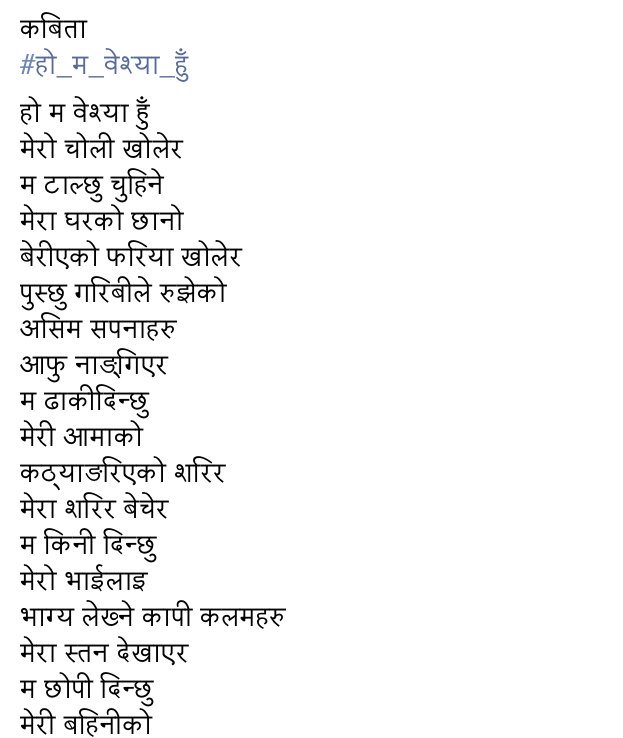 कबिता
#हो_म_वेश्या_हुँ
हो म वेश्या हुँ
मेरो चोली खोलेर
म टाल्छु चुहिने
मेरा घरको छानो
बेरीएको फरिया खोलेर
पुस्छु गरिबीले रुझेको
असिम सपनाहरु
आफु नाङ्गिएर
म ढाकीदिन्छु
मेरी आमाको
कठ्याङरिएको शरिर
मेरा शरिर बेचेर
म किनी दिन्छु
मेरो भाईलाइ
भाग्य लेख्ने कापी कलमहरु
मेरा स्तन देखाएर
म छोपी दिन्छु
मेरी बहिनीको